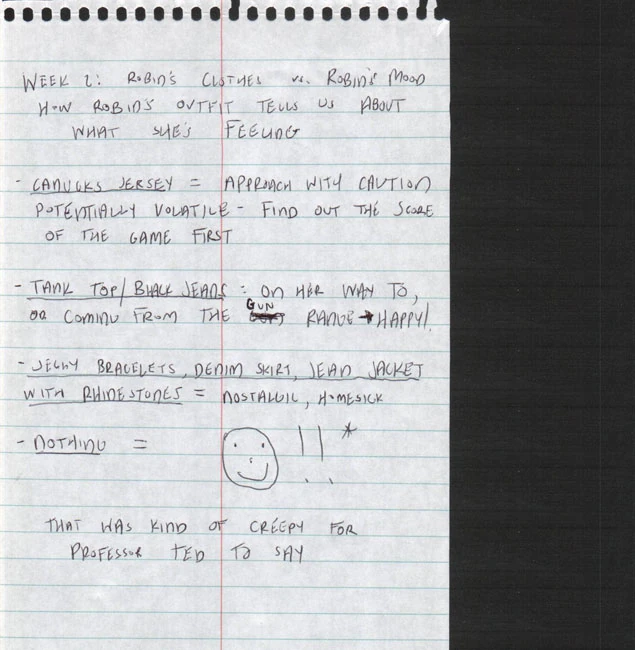 WEEK 2: ROBIN'S CLOTHES vs. ROBIN'S MOOD
HOW ROBIN'S OUTFIT TELLS US ABOUT
WHAT SHE'S FEELING
- CANUCKS JERSEY = APPROACH WITH CAUTION
POTENTIALLY VOLATILE - FIND OUT THE SCORE
OF THE GAME FIRST
- TANK TOP/BLACK JEANS = ON HER WAY TO,
OR COMING FROM THE GUN RANGE → HAPPY!
- JELLY BRACELETS, DENIM SKIRT, JEAN JACKET
WITH RHINESTONES = NOSTALGIC, HOMESICK
- NOTHING = !! *
THAT WAS KIND OF CREEPY FOR
PROFESSOR TED TO SAY